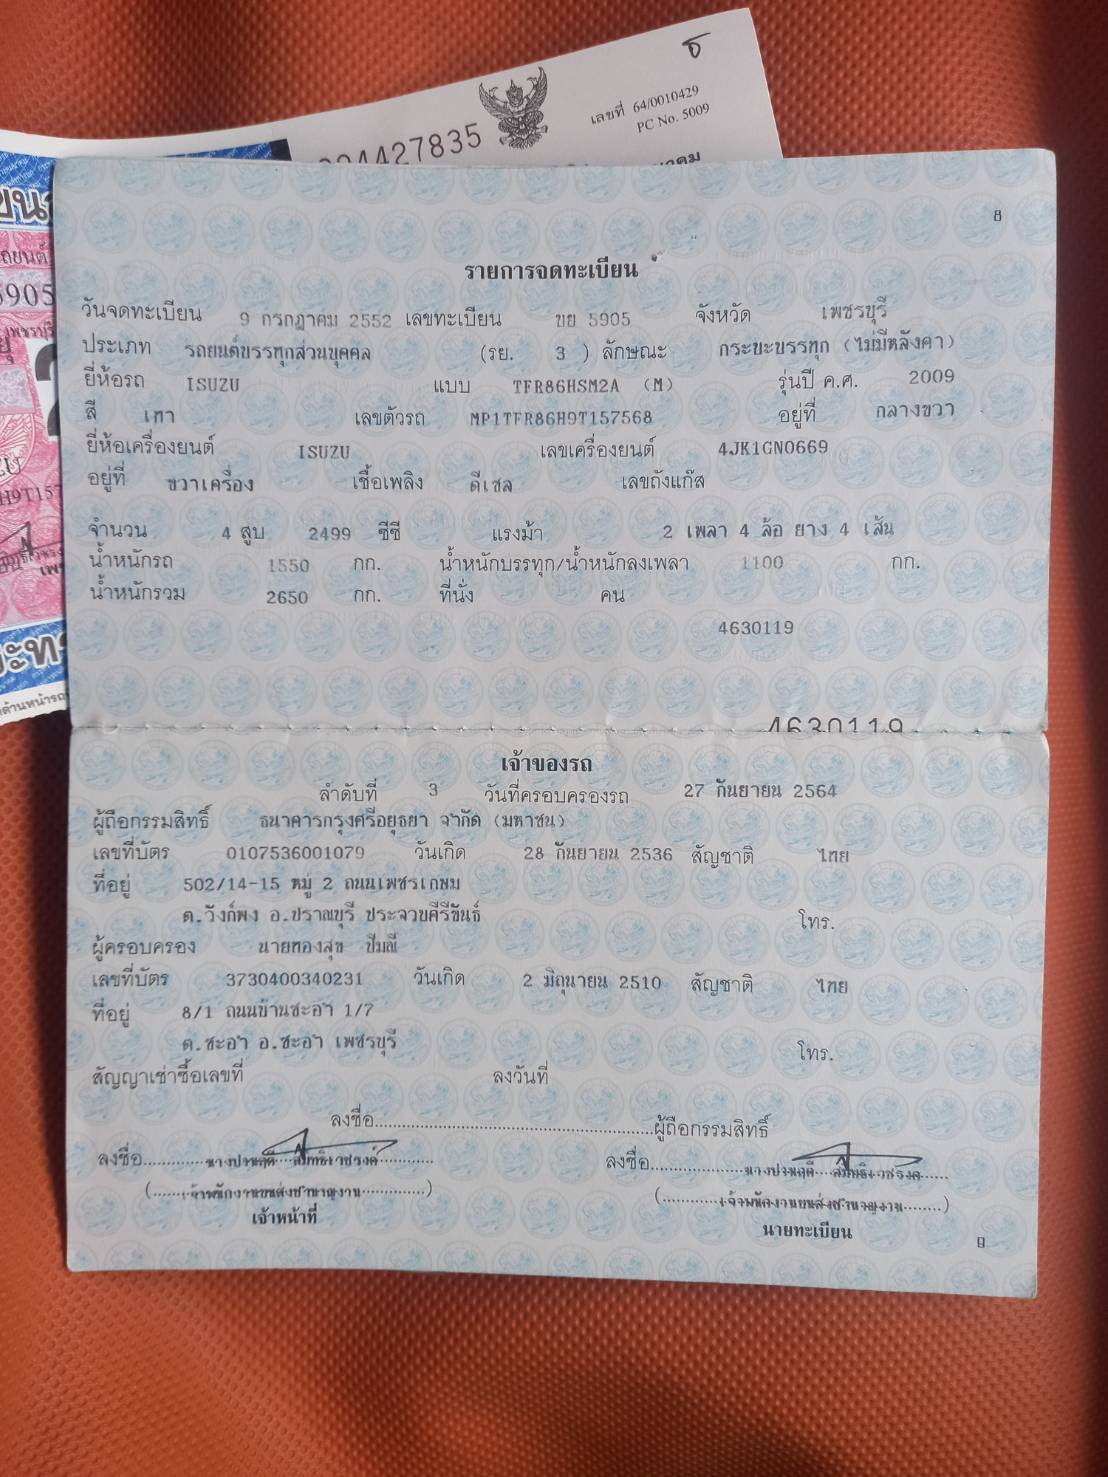 ธ
เลขที่ 64/0010429
PC No. 5009
4427835
5905
8
รายการจดทะเบียน
วันจดทะเบียน 9 กรกฎาคม 2552 เลขทะเบียน บย 5905 จังหวัด เพชรบุรี
ประเภท รถยนต์บรรทุกส่วนบุคคล (รย. 3 ) ลักษณะ กระบะบรรทุก (ไม่มีหลังคา)
ยี่ห้อรถ ISUZU แบบ TFR86HSM2A (M) รุ่นปี ค.ศ. 2009
สี เทา เลขตัวรถ MP1TFR86H9T157568 อยู่ที่ กลางขวา
ยี่ห้อเครื่องยนต์ ISUZU เลขเครื่องยนต์ 4JK1GN0669
อยู่ที่ ขวาเครื่อง เชื้อเพลิง ดีเซล เลขถังแก๊ส
จำนวน 4 สูบ 2499 ซีซี แรงม้า 2 เพลา 4 ล้อ ยาง 4 เส้น
น้ำหนักรถ 1550 กก. น้ำหนักบรรทุก/น้ำหนักลงเพลา 1100 กก.
น้ำหนักรวม 2650 กก. ที่นั่ง คน
4630119
4630119
เจ้าของรถ
ลำดับที่ 3 วันที่ครอบครองรถ 27 กันยายน 2564
ผู้ถือกรรมสิทธิ์ ธนาคารกรุงศรีอยุธยา จำกัด (มหาชน)
เลขที่บัตร 0107536001079 วันเกิด 28 กันยายน 2536 สัญชาติ ไทย
ที่อยู่ 502/14-15 หมู่ 2 ถนนเพชรเกษม
ต.วังก์พง อ.ปราณบุรี ประจวบคีรีขันธ์ โทร.
ผู้ครอบครอง นายทองสุข ปิ่มณี
เลขที่บัตร 3730400340231 วันเกิด 2 มิถุนายน 2510 สัญชาติ ไทย
ที่อยู่ 8/1 ถนนบ้านชะอำ 1/7
ต.ชะอำ อ.ชะอำ เพชรบุรี โทร.
สัญญาเช่าซื้อเลขที่ ลงวันที่
ลงชื่อ ผู้ถือกรรมสิทธิ์
ลงชื่อ ลงชื่อ
(เจ้าพนักงานขนส่งชำนาญงาน) (เจ้าพนักงานขนส่งชำนาญงาน)
เจ้าหน้าที่ นายทะเบียน
9